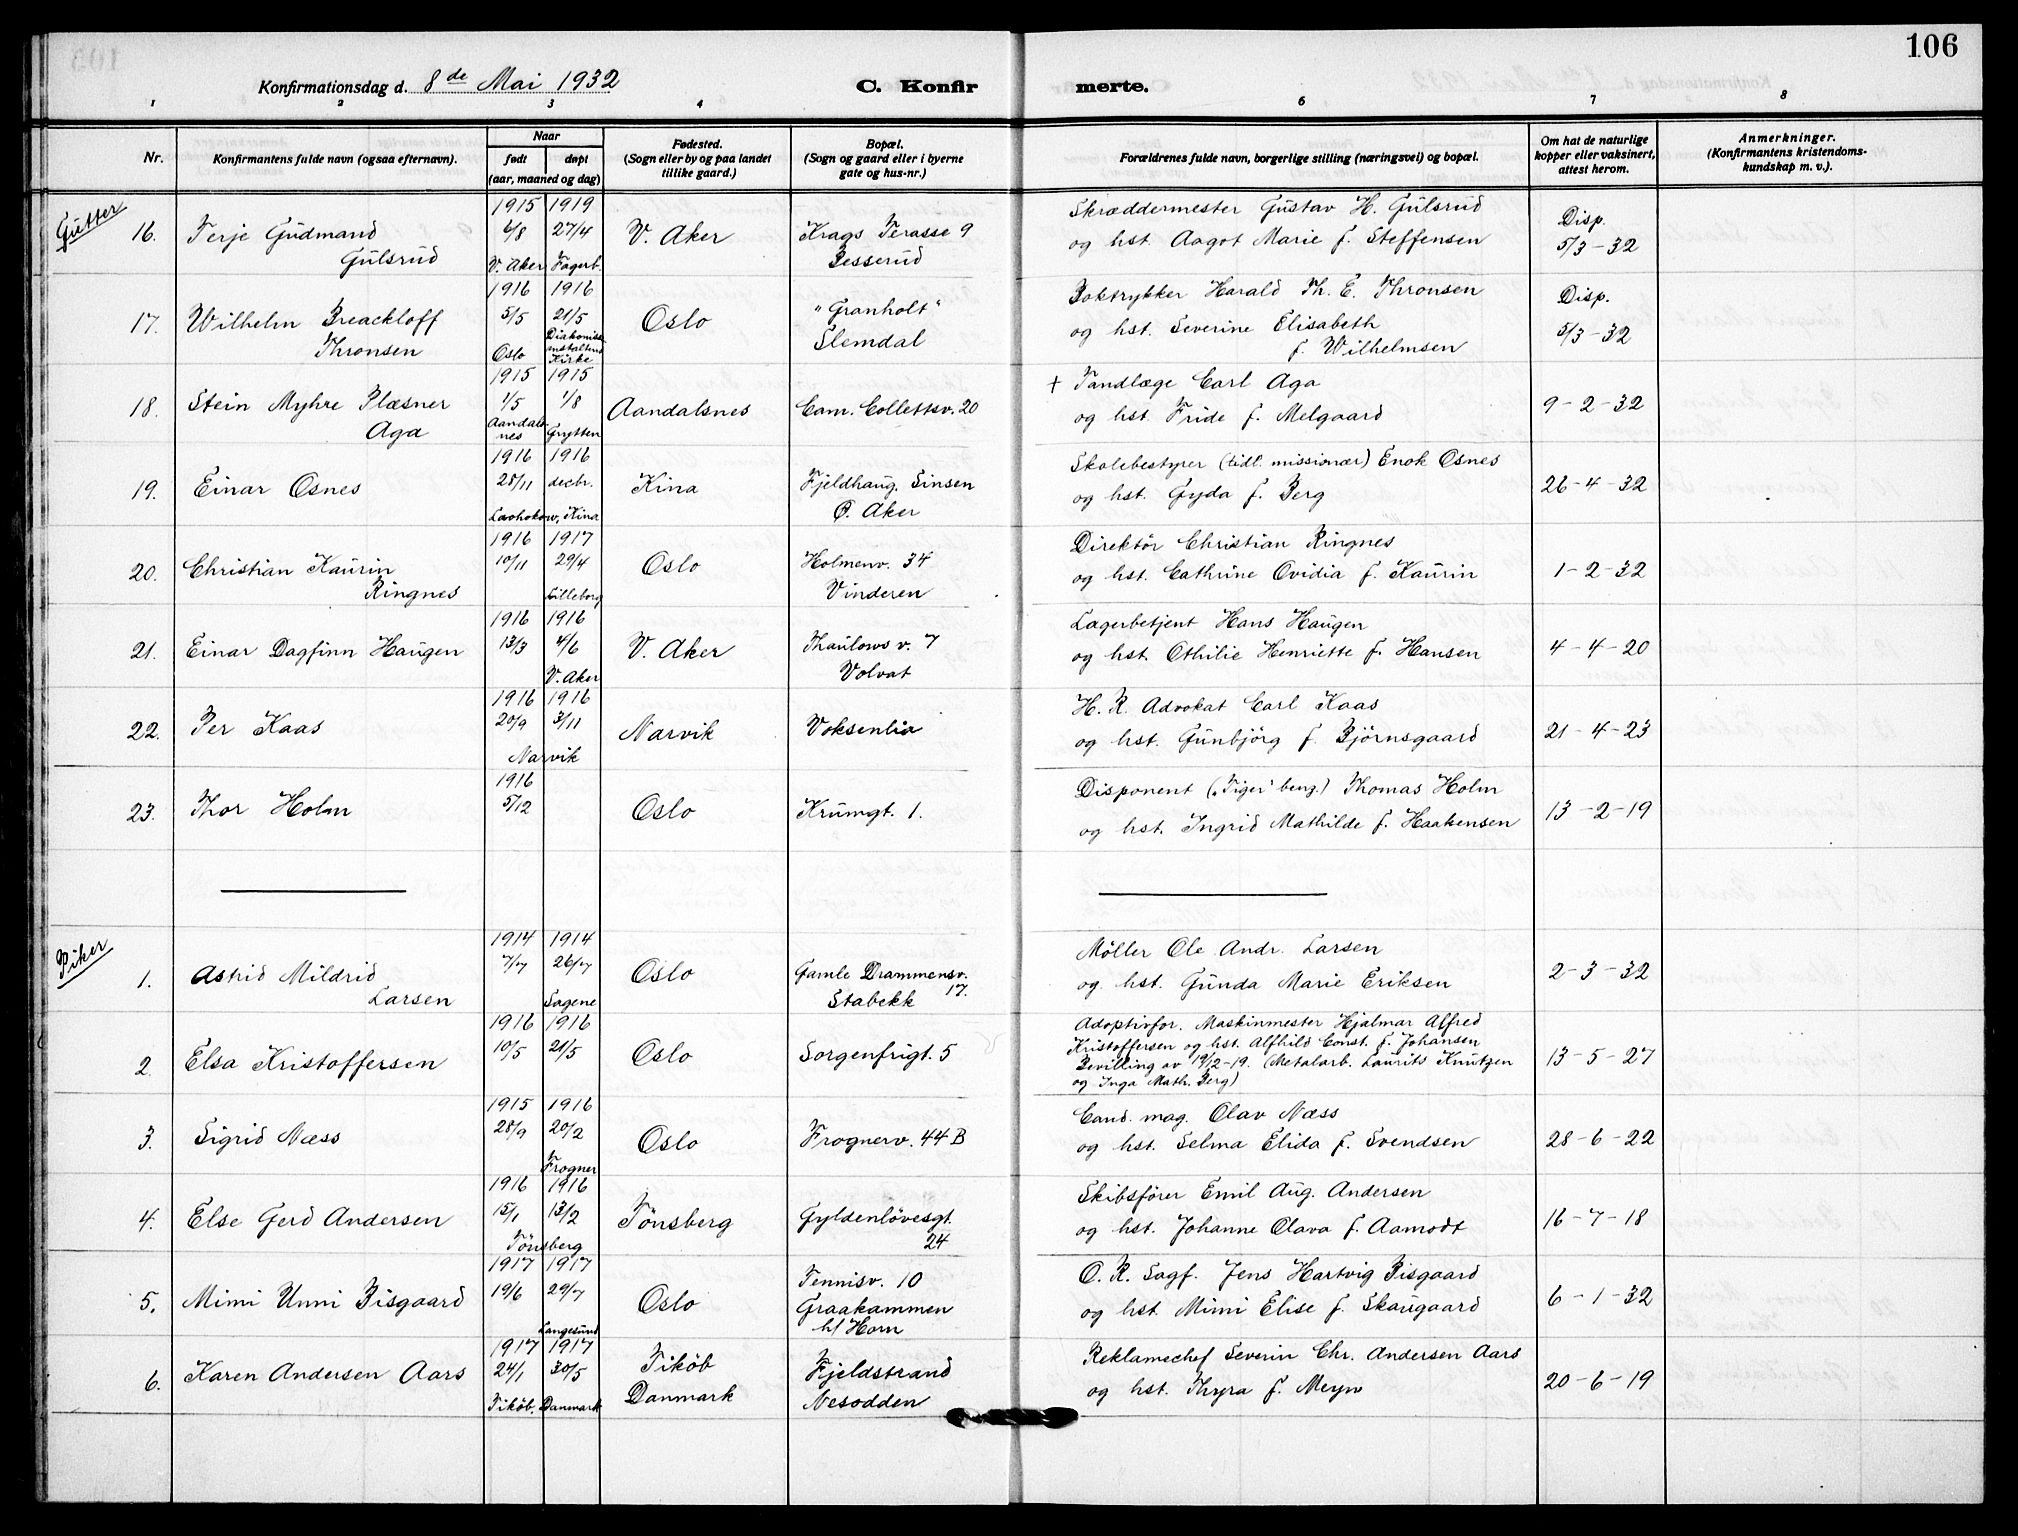 106
Konfirmationsdag d. 8de Mai 1932
C. Konfir
merte.
1 2 3 4 6 7 8
Nr.
Konfirmantens fulde navn (ogsaa efternavn).
Naar
født
døpt
(aar, maaned og dag)
Fødested.
(Sogn eller by og paa landet
tillike gaard.)
Bopæl.
(Sogn og gaard eller i byerne
gate og hus-nr.)
Forældrenes fulde navn, borgerlige stilling (næringsvei) og bopæl.
Om hat de naturlige
kopper eller vaksinert,
attest herom.
Anmerkninger.
(Konfirmantens kristendoms-
kundskap m. v.).
Gutter
16. Terje Gudmand
Gulsrud
1915 1919
6/8 27/4
V. Aker Fagerb.
V. Aker
Krags Terasse 9
Besserud
Skræddermester Gustav H. Gulsrud
og hst. Aagot Marie f. Steffensen
Disp.
5/3-32
17. Wilhelm Breackloff
Thronsen
1916 1916
5/5 21/5
Oslo
Diakonisse
anstaltens
Kirke
Oslo
"Granholt"
Slemdal
Boktrykker Harald Th. E. Thronsen
og hst. Severine Elisabeth
f. Wilhelmsen
Disp.
5/3-32
18. Stein Myhre Plæsner
Aga
1915 1915
1/5 1/8
Aandals
nes Grytten
Aandalsnes
Cam. Collettsv. 20
+ Tandlæge Carl Aga
og hst. Fride f. Melgaard
9-2-32
19. Einar Osnes
1916 1916
28/11 decbr.
Laohokow, Kina
Kina
Fjeldhaug. Sinsen
Ø. Aker
Skolebestyrer (tidl. missionær) Enok Osnes
og hst. Gyda f. Berg
26-4-32
20. Christian Kaurin
Ringnes
1916 1917
10/11 29/4
Lilleborg
Oslo
Holmenv. 34
Vinderen
Direktör Christian Ringnes
og hst. Cathrine Ovidia f. Kaurin
1-2-32
21. Einar Dagfinn Haugen
1916 1916
13/3 4/6
V. Aker
V. Aker
Thaulows v. 7
Volvat
Lagerbetjent Hans Haugen
og hst. Othilie Henriette f. Hansen
4-4-20
22. Per Kaas
1916 1916
20/9 3/11
Narvik
Narvik
Voksenlia
H. R. Advokat Carl Kaas
og hst. Gunbjörg f. Björnsgaard
21-4-23
23. Thor Holm
1916
5/12
Oslo
Krumgt. 1.
Disponent ("Tiger" beng.) Thomas Holm
og hst. Ingrid Mathilde f. Haakensen
13-2-19
Piker
1. Astrid Mildrid
Larsen
1914 1914
7/7 26/7
Sagene
Oslo
Gamle Drammensv.
Stabekk 17.
Möller Ole Andr. Larsen
og hst. Gunda Marie Eriksen
2-3-32
2. Elsa Kristoffersen
1916 1916
10/5 21/5
Oslo
Sorgenfrigt. 5
Adoptivfor. Maskinmester Hjalmar Alfred
Kristoffersen og hst. Alfhild Const. f. Johansen
Bevilling av 19/2-19. (Metalarb. Laurits Knutzen
og Inga Math. Berg)
13-5-27
3. Sigrid Næss
1915 1916
28/9 20/2
Frogner
Oslo
Frognerv. 44 B
Cand. mag. Olav Næss
og hst. Selma Elida f. Svendsen
28-6-22
4. Else Gerd Andersen
1916 1916
15/1 13/2
Tönsberg
Tönsberg
Gyldenlövesgt.
24
Skibsförer Emil Aug. Andersen
og hst. Johanne Olava f. Aamodt
16-7-18
5. Mimi Unni Bisgaard
1917 1917
19/6 29/7
Langesund
Oslo
Tennisv. 10
Graakammen
h/ Horn
O. R. Sagf. Jens Hartvig Bisgaard
og hst. Mimi Elise f. Skaugaard
6-1-32
6. Karen Andersen Aars
1917 1917
24/1 30/5
Tiköb. Danmark
Tiköb
Danmark
Fjeldstrand
Nesodden
Reklamechef Severin Chr. Andersen Aars
og hst. Thyra f. Meyn
20-6-19